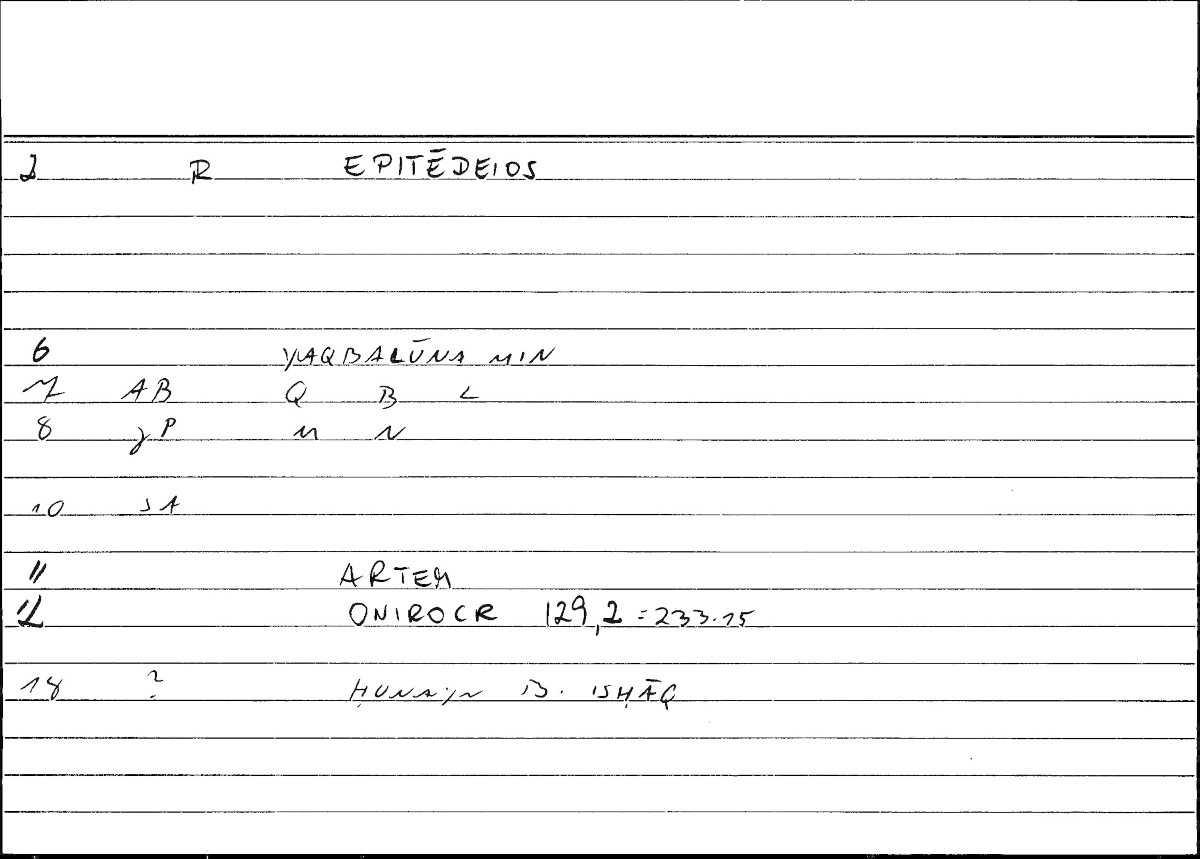 2 R EPITĒDEIOS
6 YAQBALŪNA MIN
7 AB Q B L
8 P M N
10 SA
11 ARTEM
12 ONIROCR 129,2 = 233.15
18 ? ḤUNAYN B. ISḤĀQ